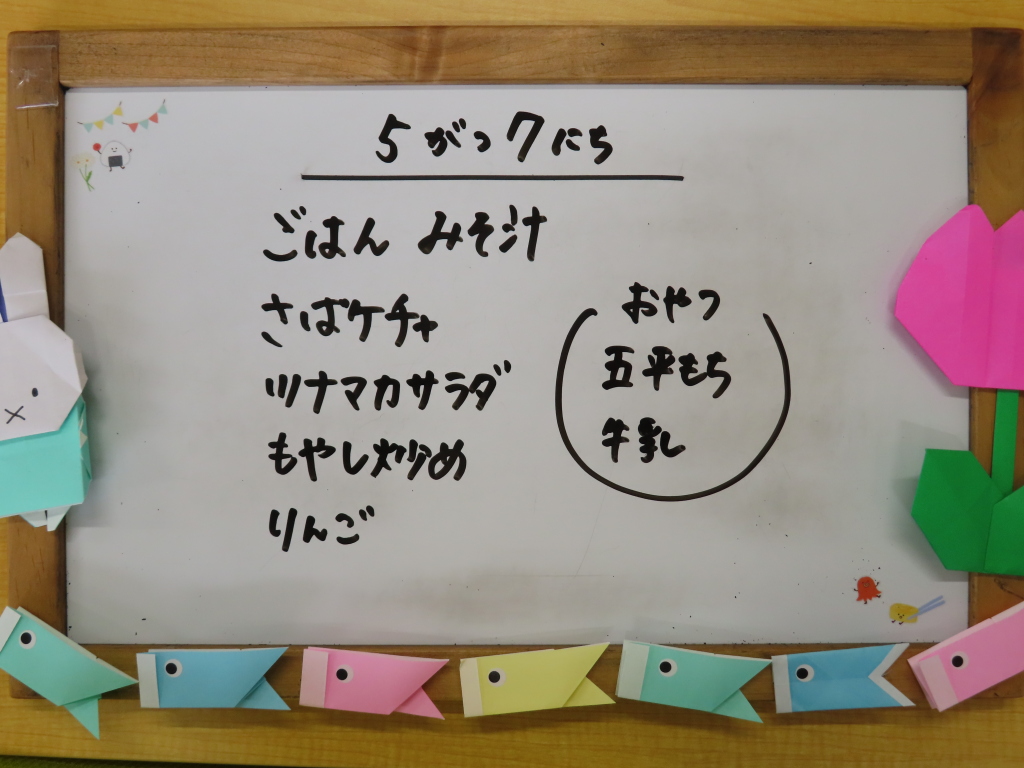 5がつ7にち
ごはん みそ汁
さばケチャ
ツナマカサラダ
もやし炒め
りんご
おやつ
五平もち
牛乳